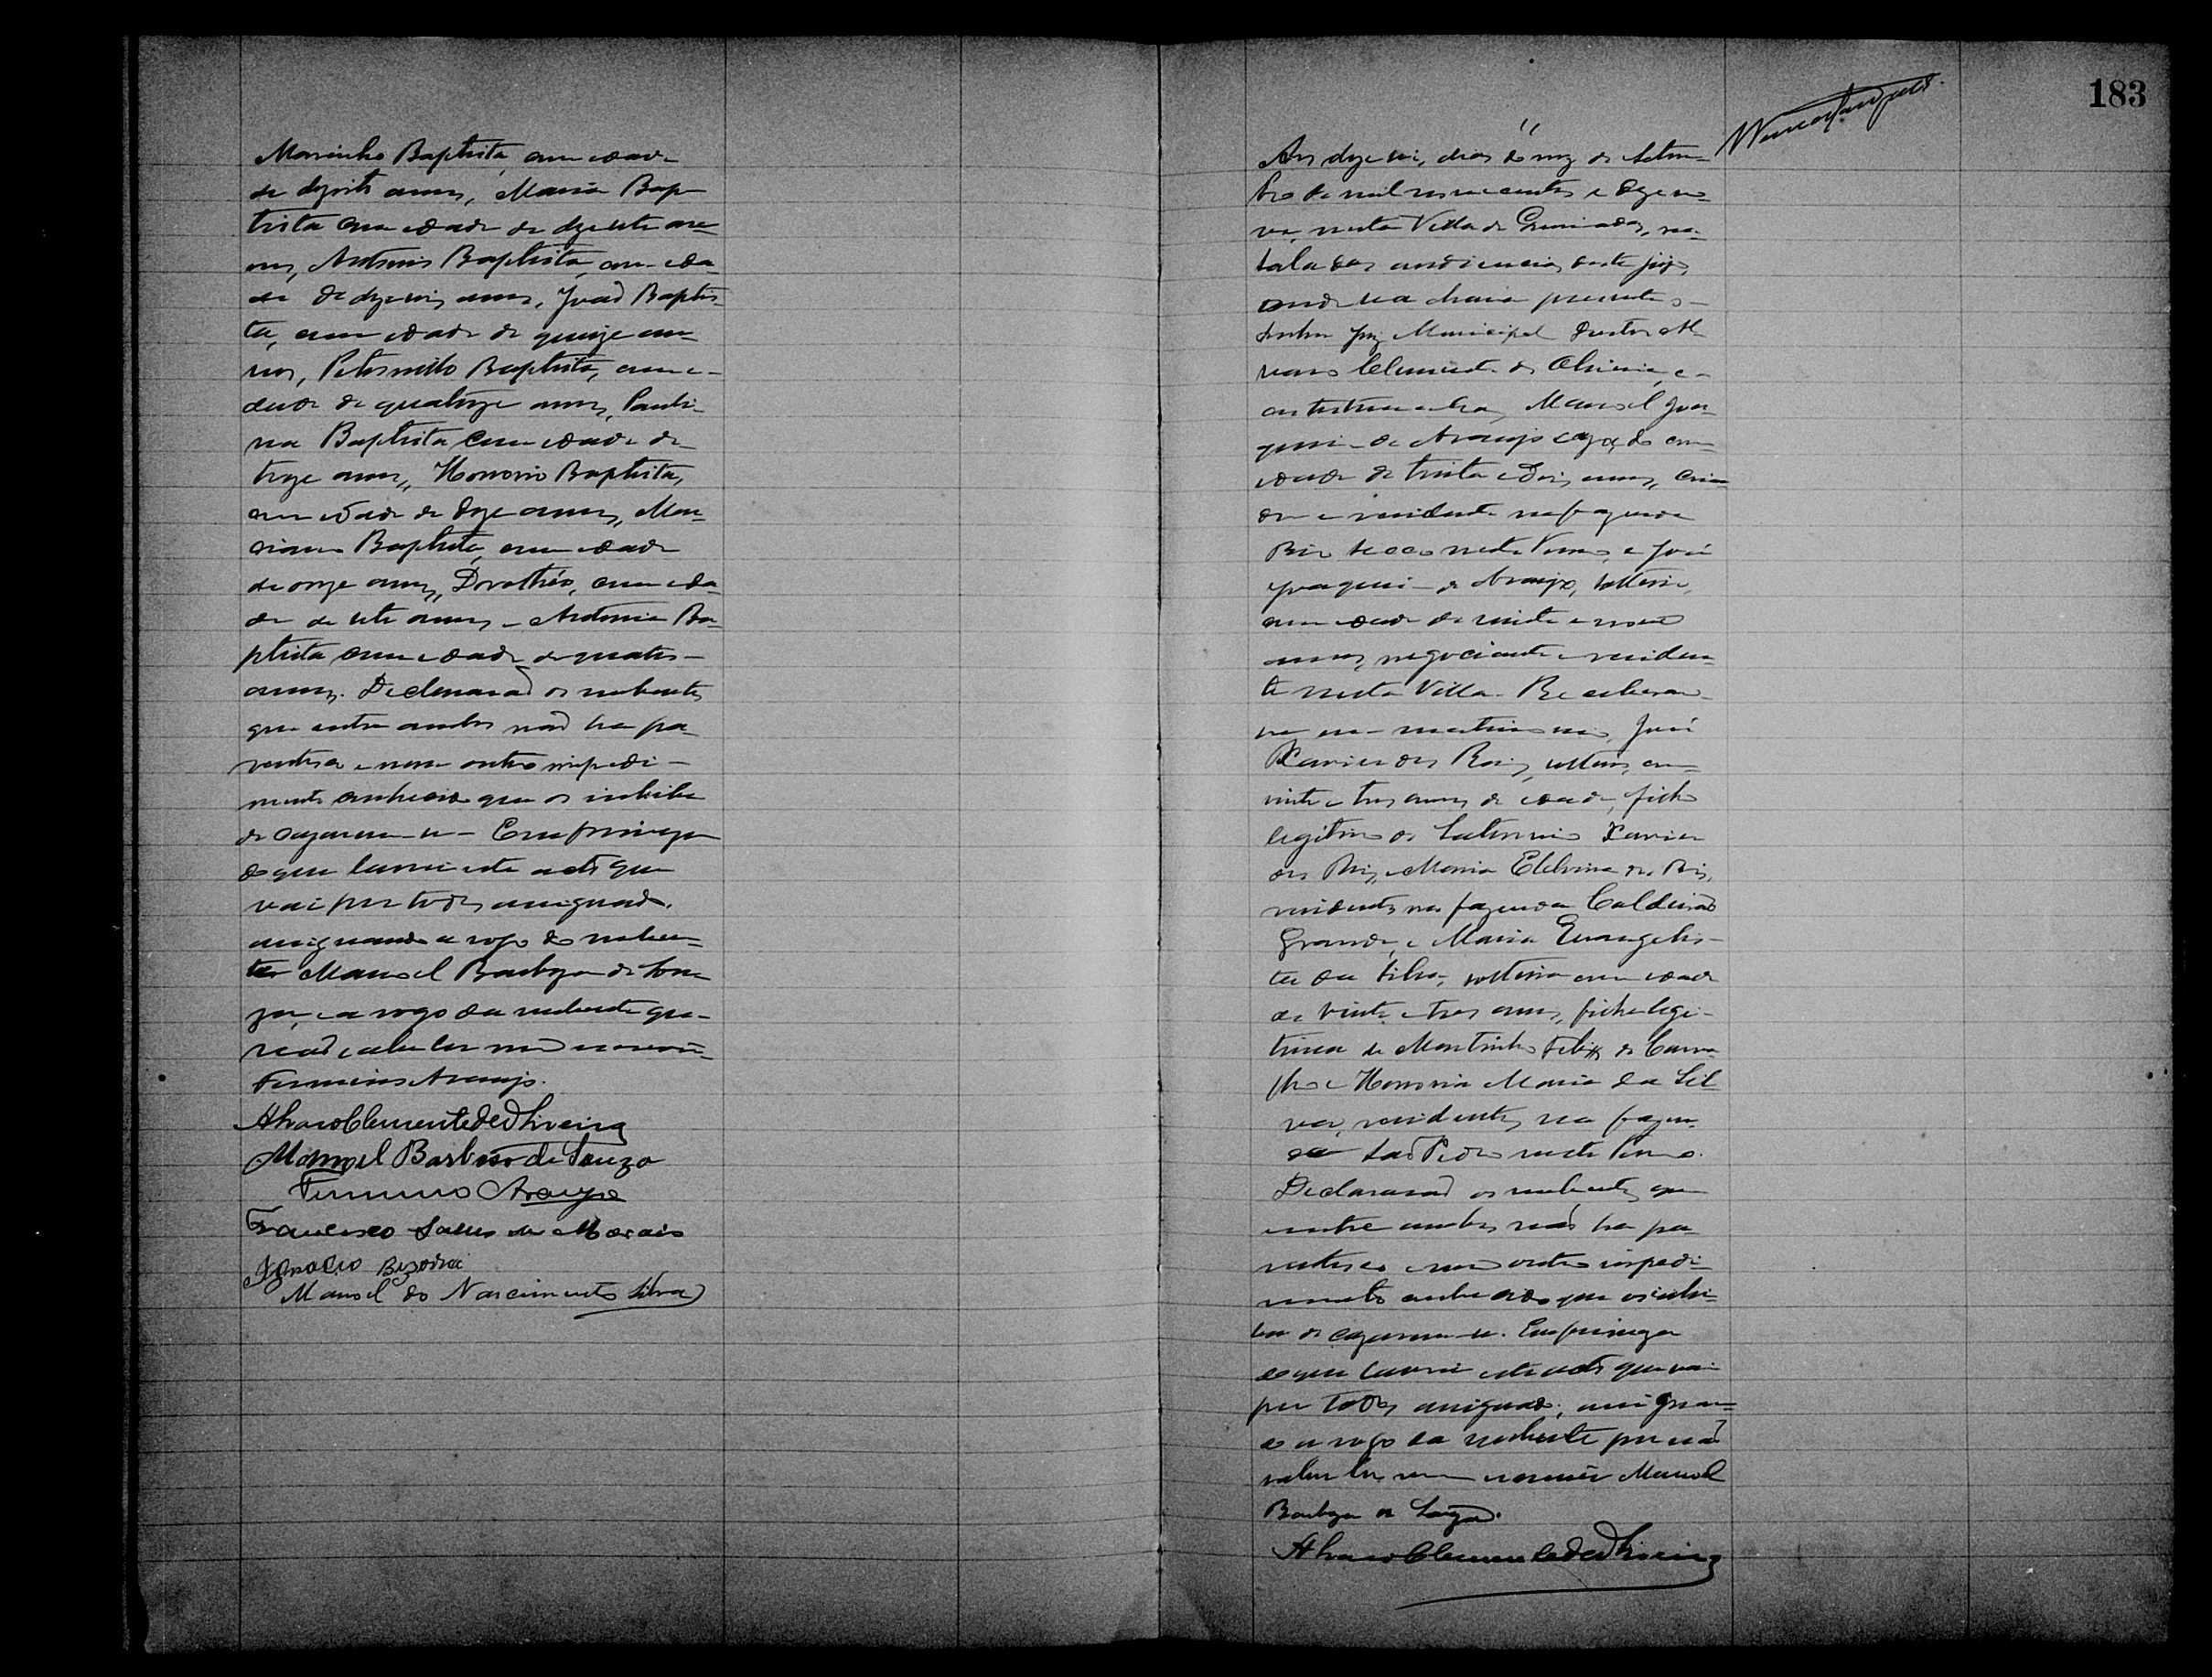 Marinho Baptista, com edade
de dezoito annos, Maria Bap
tista com edade de dezesete an
nos, Antonio Baptista, com eda
de de dezeseis annos, João Baptis
ta, com edade de quinze an
nos, Petornillo Baptista, com e
dade de quatorze annos, Pauli
na Baptista com edade de
treze annos, Honorio Baptista,
com edade de doze annos, Mar
ciano Baptista, com edade
de onze annos, Dorothéa, com eda
de de sete annos e Antonia Ba
ptista com edade de quatro
annos. Declararão os nubentes
que entre ambos não ha pa
rentesco e nem outro impedi
mento conhecido que os inhiba
de cazarem-se. Em firmeza
do que lavrei este acto que
vai por todos assignado,
assignando a rogo do nuben
te Manoel Barboza de Sou
za, e a rogo da nubente que
não sabe ler nem escrever
Firmino Araujo.
Alvaro Clemente de Oliveira
Manoel Barbosa de Souza
Firmino Araujo
Francisco Salles de Moraes
Ignacio Bezerra
Manoel do Nascimento Silva
183
Aos dezeseis dias do mez de Setem
bro de mil novecentos e dezeno
ve, nesta Villa de, na
sala das audiencias deste juizo
onde se achava presente o
Senhor Juiz Municipal Doutor Al
varo Clemente de Oliveira, e
as testemunhas, Manoel Joa
quim de Araujo cazado com
edade de trinta e dois annos, cria
dor e residente na fazenda
Rio Secco neste Termo e José
Joaquim de Araujo, solteiro,
com edade de vinte e nove
annos, negociante e residen
te nesta Villa. Receberam
se em matrimonio, José
Xavier dos Reis, solteiro, com
vinte e tres annos de edade, filho
legitimo de Saturnino Xavier
dos Reis e Maria Etelvina dos Reis,
residentes na fazenda Caldeirão
Grande, e Maria Evangelis
ta da Silva, solteira com edade
de vinte e tres annos, filha legi
tima de Martinho Felix de Carva
lho e Honoria Maria da Sil
va, residentes na fazen
da São Pedro neste Termo.
Declararão os nubentes que
entre ambos não ha pa
rentesco e nem outro impedi
mento conhecido que os inhi
ba de cazarem-se. Em firmeza
do que lavrei este acto que vai
por todos assignado, assignan
do a rogo da nubente por não
saber ler nem escrever Manoel
Barboza de Souza.
Alvaro Clemente de Oliveira